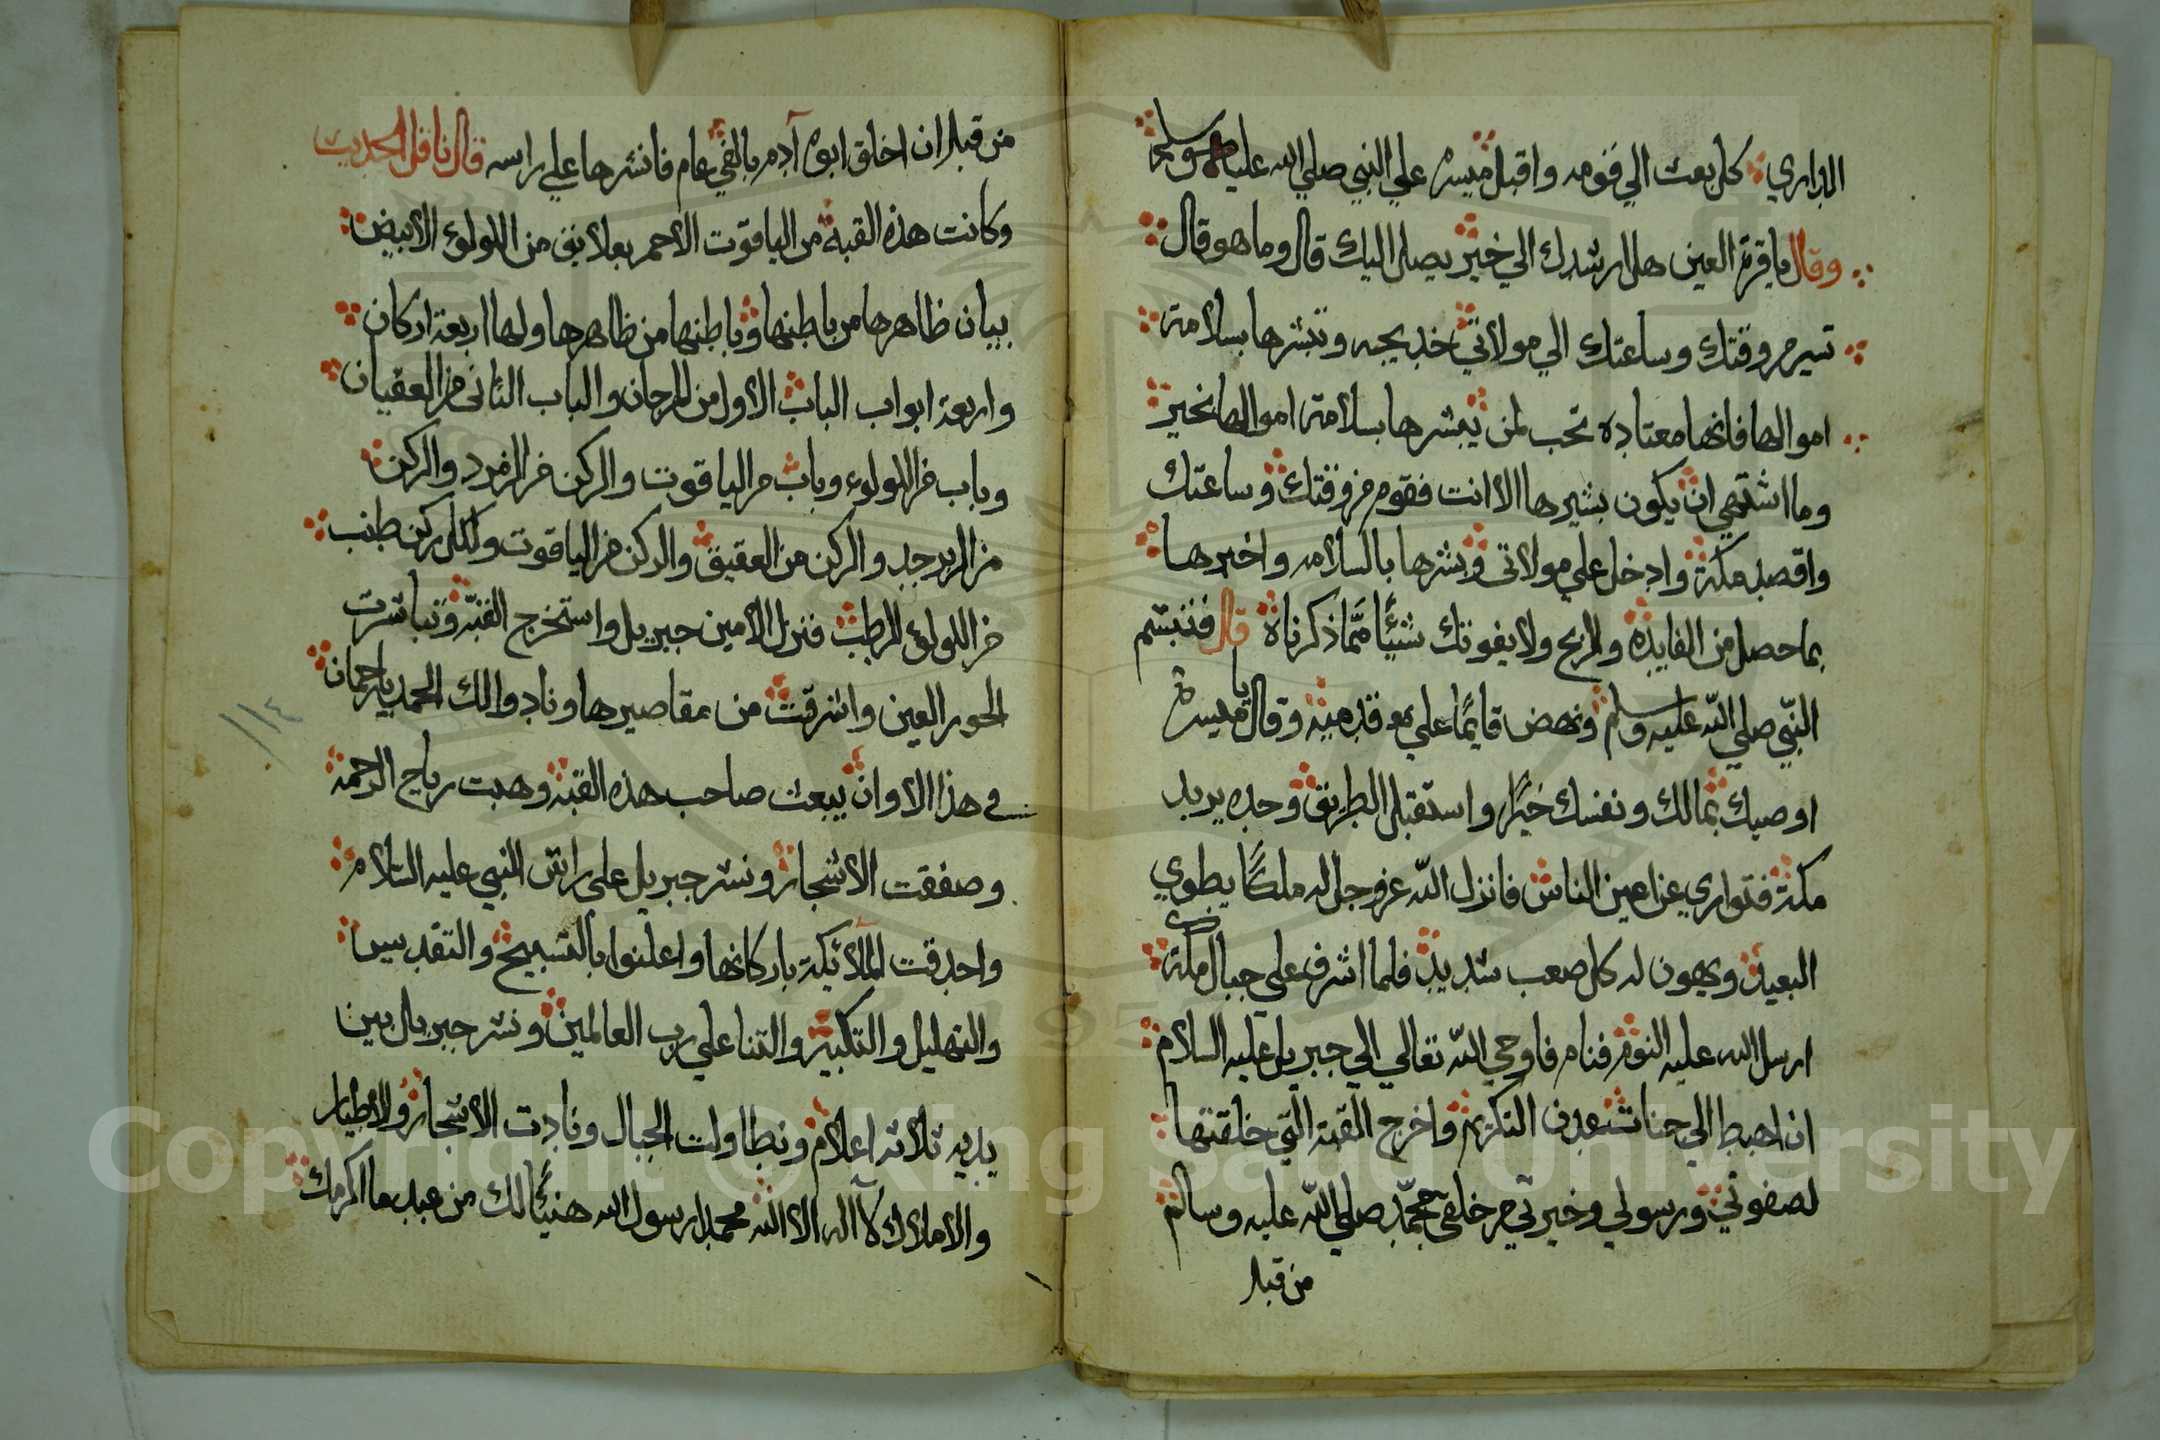 البراري كل بعث الي قومه واقبل ميسره علي النبي صلي الله عليه وسلم
وقال يا قرة العين هل ارشدك الي خير يصل اليك قال وما هو قال
تسير من وقتك وساعتك الي مولاتي خديجه وتبشرها بسلامة
اموالها فانها معتاده تحب لمن يبشرها بسلامة اموالها بخير
وما اشتهي ان يكون بشيرها الا انت فقوم من وقتك وساعتك
واقصد مكة وادخل علي مولاتي وبشرها بالسلامه واخبرها
بما حصل من الفايده والربح ولا يفوتك شيئا مما ذكرناه قال فتبسم
النبي صلي الله عليه وسلم ونهض قايما علي قدميه وقال يا ميسرة
اوصيك بمالك ونفسك خيرا واستقبل الطريق وحده يريد
مكة فتواري عن اعين الناس فانزل الله عز وجل له ملكا يطوي
البعيد ويهون له كل صعب شديد فلما اشرف على جبال مكة
ارسل الله عليه النوم فنام فاوحي الله تعالي الي جبريل عليه السلام
ان اهبط الي جنات عدن التكريم واخرج القبة التي خلقتها
لصفوتي ورسولي وخيرتي من خلقي محمد صلي الله عليه وسلم
من قبل
من قبل ان اخلق ابوه آدم بالفي عام فانشرها علي راسه قال ناقل الحديث
وكانت هذه القبة من الياقوت الاحمر بعلايق من اللولوء الابيض
يبان ظاهرها من باطنها وباطنها من ظاهرها ولها اربعة اركان
واربعة ابواب الباب الاول من المرجان والباب الثانى من العقيان
وباب من اللولوء وباب من الياقوت والركن من الزمرد والركن
من الزبرجد والركن من العقيق والركن من الياقوت ولكل ركن طنب
من اللولوء الرطب فنزل الامين جبريل واستخرج القبه وتباشرت
الحور العين واشرقت من مقاصيرها ونادوا لك الحمد يا رحمان
في هذا الاوان يبعث صاحب هذه القبه وهبت رياح الرحمة
وصفقت الاشجار ونشر جبريل على راس النبي عليه السلام
واحدقت الملائكة باركانها واعلنوا بالتسبيح والتقديس
والتهليل والتكبير والثنا علي رب العالمين ونشر جبريل بين
يديه ثلاثه اعلام وتطاولت الجبال ونادت الاشجار والاطيار
والاملاك لا اله الا الله محمدا رسول الله هنيئا لك من عبد ما اكرمك
١١٤
Copyright © King Saud University